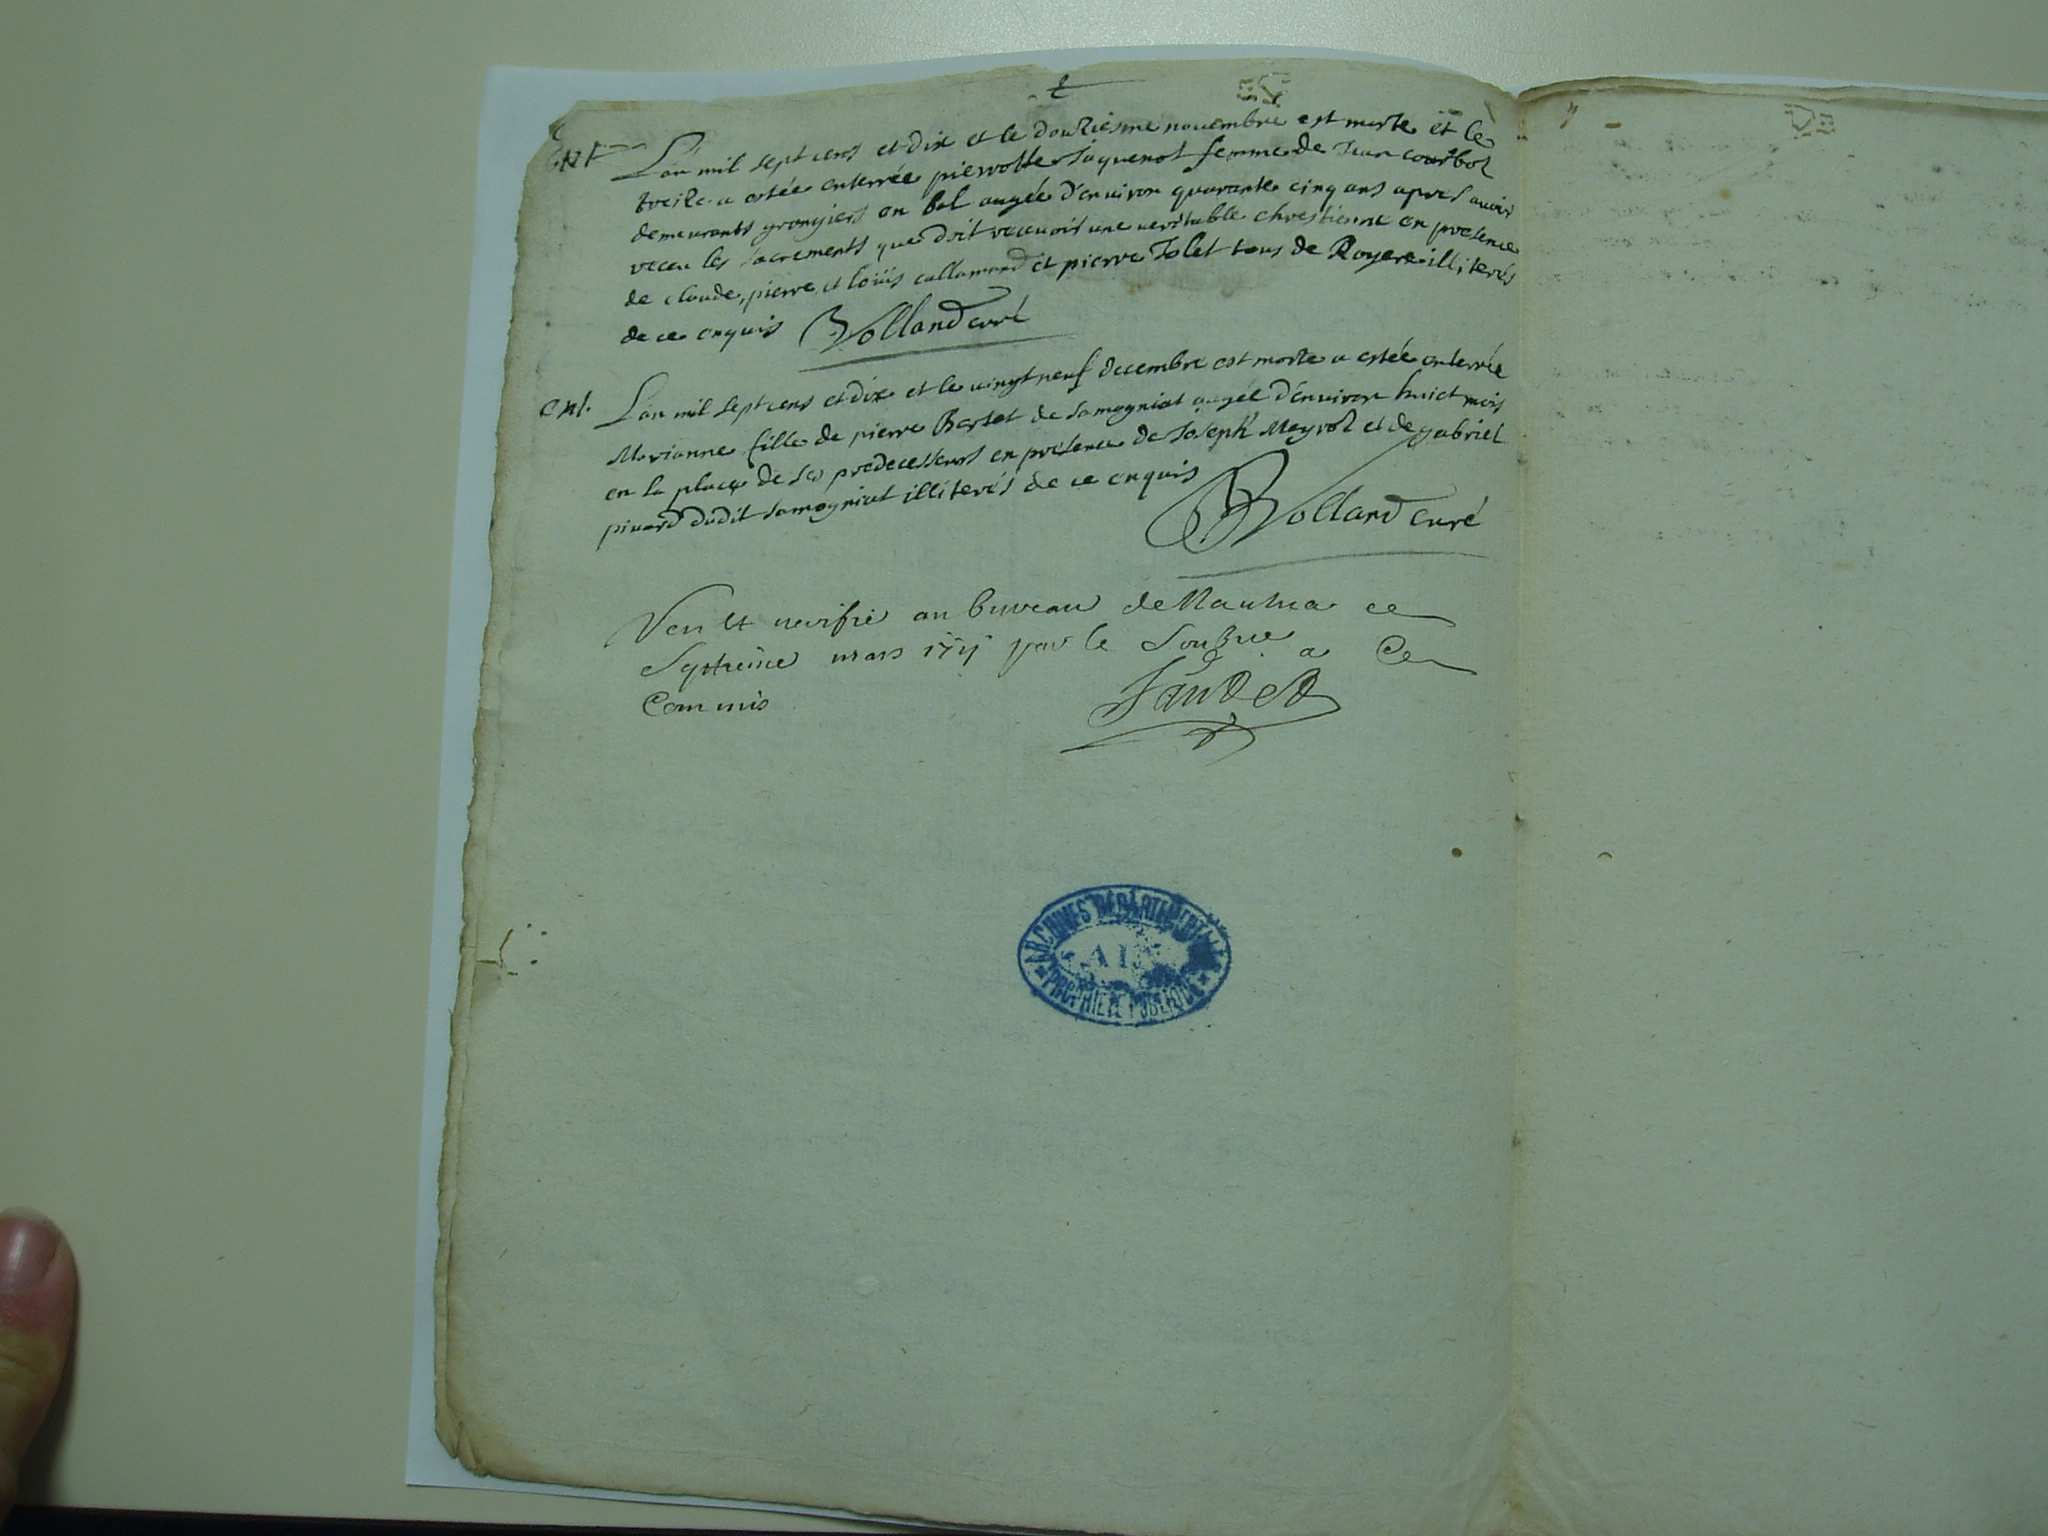 Ent
L'an mil sept cens et dix et le douziesme novembre est morte et le
treize a estée enterrée pierrotte Jaquenot femme de Jean courbot
demeurants grangiers en bel augée d'environ quarante cinq ans apres avoir
receu les sacrements que doit recevoir une veritable chrestienne en presence
de claude, pierre et loüis callamard et pierre Jolet tous de Royere illiterés
de ce enquis BVolland curé
ent.
L'an mil sept cens et dix et le vingt neuf decembre est morte a estée enterrée
Marianne fille de pierre Bertet de samogniat augée d'environ huict mois
en la place de ses predecesseurs en presence de Joseph Mayrol et de gabriel
pivard dudit samogniat illiterés de ce enquis
BVolland curé
Veu et verifié au bureau de Nantua ce
Septieme mars 1711 par le Soubne a Ce
Commis
ARCHIVES DÉPARTEMENTALES
AIN
PROPRIÉTÉ PUBLIQUE